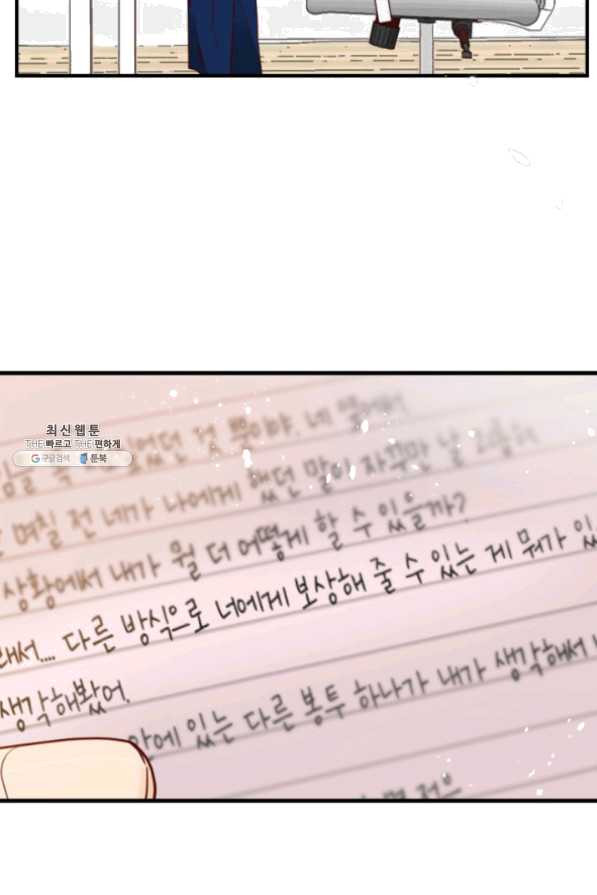 최신웹툰
THE빠르고 THE편하게
구글검색 툰북
것 뿐이야. 네
며칠 전 네가 나에게 했던 말이 자꾸만
상황에서 내가 뭘 더 어떻게 할 수 있을까?
래서.... 다른 방식으로 너에게 보상해 줄 수 있는 게 뭐가 있
생각해봤어.
안에 있는 다른 봉투 하나가 내가 생각해서